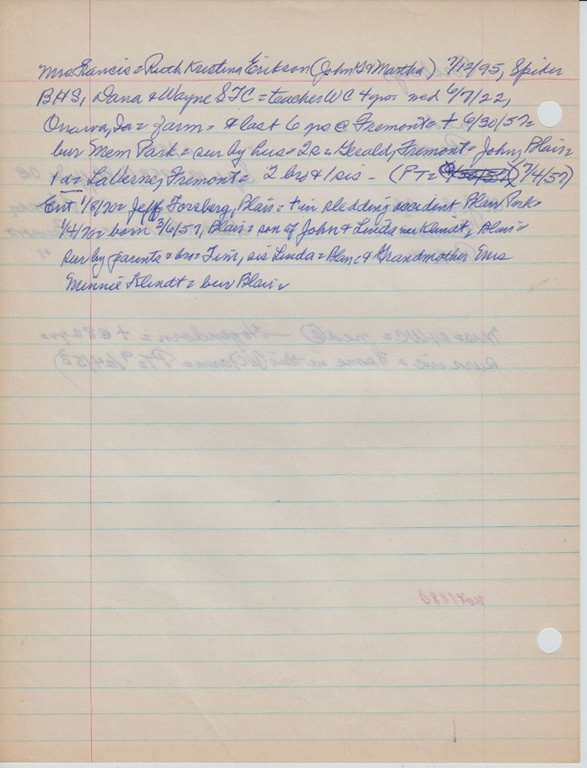 Mrs Francis = Ruth Kristina Erikson (John G & Martha) 7/12/95, Spiker
BHS, Dana & Wayne STC = teacher WC + gror med 6/7/22,
Onawa, Ia = Farm = & last 6 yrs @ Fremont = + 6/30/57 =
bur Mem Park = sur by hus = 2s = Gerald, Fremont = John, Blair
1 d = LaVerne, Fremont = 2 bro & 1 sis - (PT = 7/4/57)
Ent 1/8/70 = Jeff Forsberg, Blair = + in sledding accident Blair Park =
1/4/70 = born 3/6/57, Blair = son of John & Linda Klindt, Blair =
sur by parents = bro Tim, sis Linda = Blair & Grandmother Mrs
Minnie Klindt = bur Blair